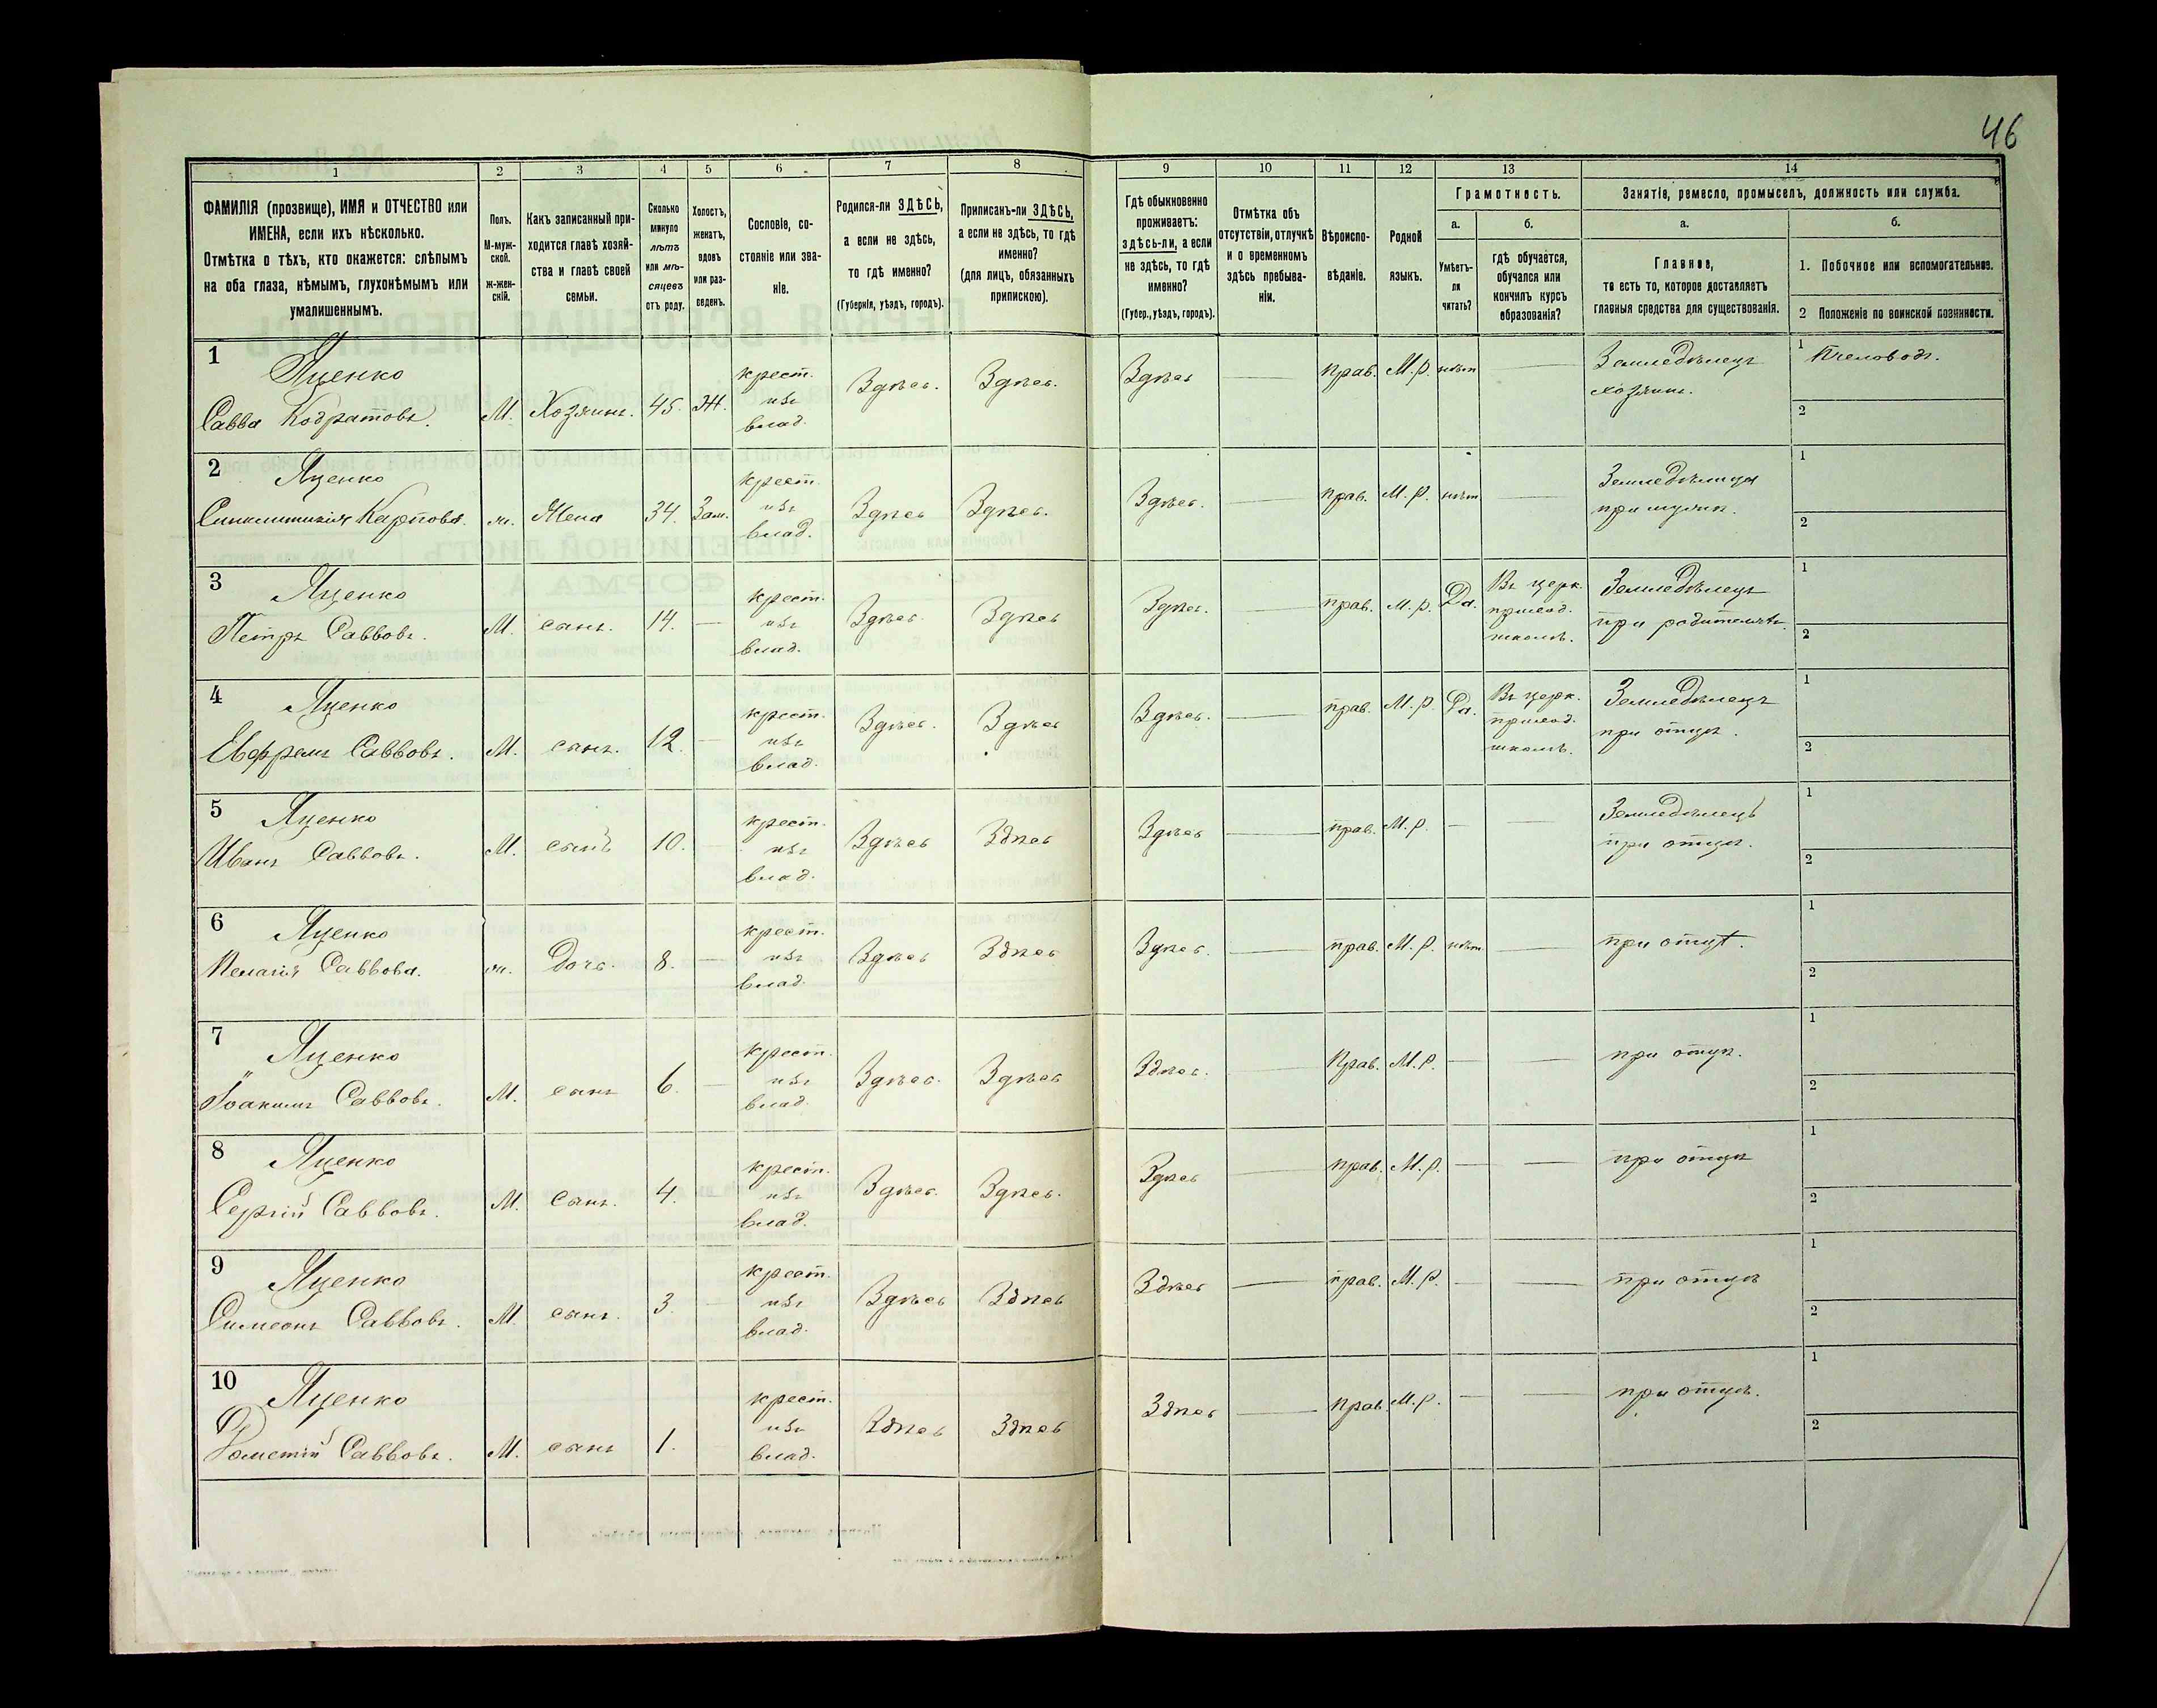 46
1 2 3 4 5 6 7 8 9 10 11 12 13 14
ФАМИЛІЯ (прозвище), ИМЯ и ОТЧЕСТВО или
ИМЕНА, если ихъ нѣсколько.
Отмѣтка о тѣхъ, кто окажется: слѣпымъ
на оба глаза, нѣмымъ, глухонѣмымъ или
умалишеннымъ.
Полъ.
М-муж-
ской.
ж-жен-
скій.
Какъ записанный при-
ходится главѣ хозяй-
ства и главѣ своей
семьи.
Сколько
минуло
лѣтъ
или мѣ-
сяцевъ
отъ роду.
Холостъ,
женатъ,
вдовъ
или раз-
веденъ.
Сословіе, со-
стояніе или зва-
ніе.
Родился-ли ЗДѢСЬ,
а если не здѣсь,
то гдѣ именно?
(Губернія, уѣздъ, городъ).
Приписанъ-ли ЗДѢСЬ,
а если не здѣсь, то гдѣ
именно?
(для лицъ, обязанныхъ
припискою).
Гдѣ обыкновенно
проживаетъ:
здѣсь-ли, а если
не здѣсь, то гдѣ
именно?
(Губер., уѣздъ, городъ).
Отмѣтка объ
отсутствіи, отлучкѣ
и о временномъ
здѣсь пребыва-
ніи.
Вѣроиспо-
вѣданіе.
Родной
языкъ.
Грамотность.
а.
Умѣетъ-
ли
читать?
б.
гдѣ обучается,
обучался или
кончилъ курсъ
образованія?
Занятіе, ремесло, промыселъ, должность или служба.
а.
Главное,
то есть то, которое доставляетъ
главныя средства для существованія.
б.
1. Побочное или вспомогательное.
2 Положеніе по воинской повинности.
1 Яценко
Савва Кодратовъ.
М. Хозяинъ. 45. Ж.
крест.
изъ
влад.
Здѣсь. Здѣсь. Здѣсь — прав. М.р. нѣтъ —
Земледѣлецъ
хозяинъ.
1 Пчеловодъ.
2
2 Яценко
Синклитикія Карпова.
ж. Жена 34. Зам.
крест.
изъ
влад.
Здѣсь Здѣсь. Здѣсь. — прав. М.р. нѣтъ —
Земледѣлица
при мужѣ.
1
2
3 Яценко
Петръ Саввовъ.
М. сынъ. 14. —
крест.
изъ
влад.
Здѣсь. Здѣсь Здѣсь. — прав. М.р. Да.
Въ церк.
приход.
школѣ.
Земледѣлецъ
при родителѣ.
1
2
4 Яценко
Евфремъ Саввовъ.
М. сынъ. 12. —
крест.
изъ
влад.
Здѣсь. Здѣсь Здѣсь. — прав. М.р. Да.
Въ церк.
приход.
школѣ.
Земледѣлецъ
при отцѣ.
1
2
5 Яценко
Иванъ Саввовъ.
М. сынъ 10. —
крест.
изъ
влад.
Здѣсь Здѣсь Здѣсь — прав. М.р. — —
Земледѣлецъ
при отцѣ.
1
2
6 Яценко
Пелагія Саввова.
ж. Дочь. 8. —
крест.
изъ
влад.
Здѣсь Здѣсь Здѣсь. — прав. М.р. нѣтъ —
при отцѣ.
1
2
7 Яценко
Іоакимъ Саввовъ.
М. сынъ 6. —
крест.
изъ
влад.
Здѣсь. Здѣсь Здѣсь. — Прав. М.р. — —
при отцѣ.
1
2
8 Яценко
Сергій Саввовъ.
М. Сынъ. 4. —
крест.
изъ
влад.
Здѣсь. Здѣсь. Здѣсь — прав. М.р. — —
при отцѣ
1
2
9 Яценко
Симеонъ Саввовъ.
М. сынъ. 3. —
крест.
изъ
влад.
Здѣсь Здѣсь Здѣсь — прав. М.р. — —
при отцѣ
1
2
10 Яценко
Саввовъ.
М. сынъ 1.
крест.
изъ
влад.
Здѣсь Здѣсь Здѣсь — прав. М.р. — —
при отцѣ.
1
2